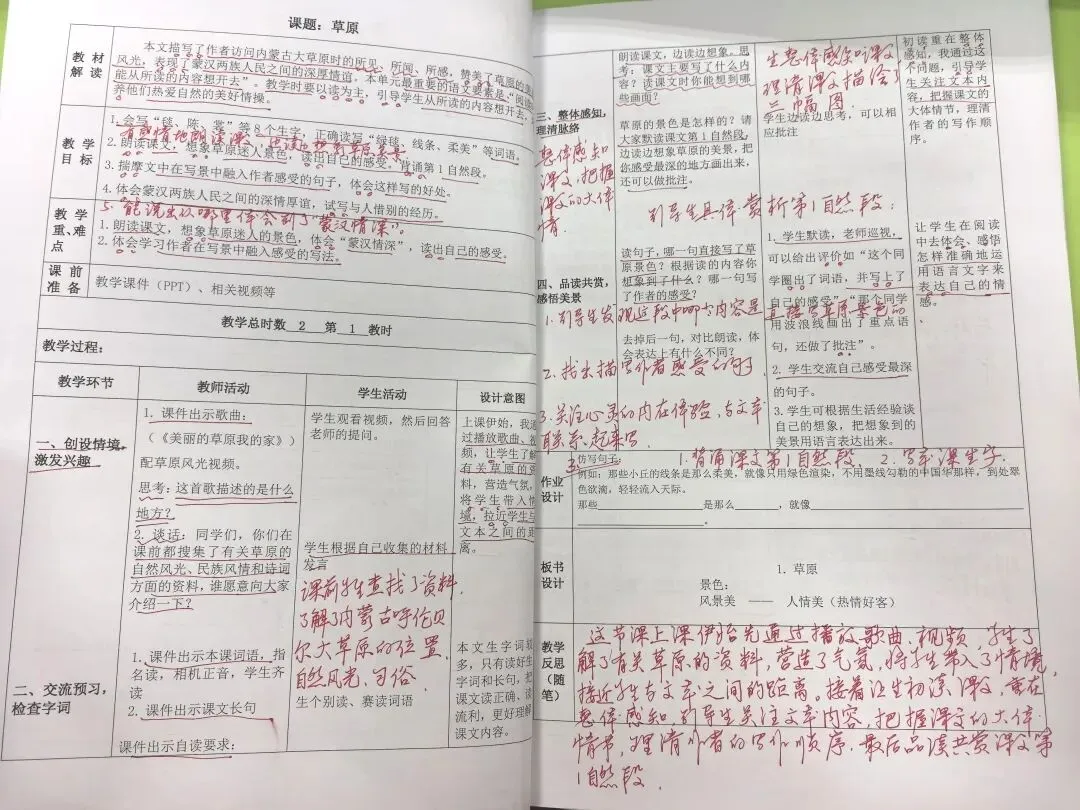 课题：草原
教 材
解 读
本文描写了作者访问内蒙古大草原时的所见、所闻、所感，赞美了草原的美
风光，表现了蒙汉两族人民之间的深厚情谊，本单元最重要的语文要素是“阅读时
能从所读的内容想开去”。教学时要以读为主，引导学生从所读的内容想开去，
养他们热爱自然的美好情操。
教 学
目 标
1.会写“毯、陈、裳”等8个生字，正确读写“绿毯、线条、柔美”等词语。
有感情地朗读课文
2.朗读课文，想象草原迷人景色，读出自己的感受。背诵第1自然段。
3.揣摩文中在写景中融入作者感受的句子，体会这样写的好处。
4.体会蒙汉两族人民之间的深情厚谊，试写与人惜别的经历。
5.能说出从哪里体会到了“蒙汉情深”。
教 学
重、难
点
1.朗读课文，想象草原迷人的景色，体会“蒙汉情深”，读出自己的感受。
2.体会学习作者在写景中融入感受的写法。
课 前
准 备
教学课件（PPT）、相关视频等
教学总时数 2 第 1 教时
教学过程：
教学环节
教师活动
学生活动
设计意图
一、创设情境，
激发兴趣
1. 课件出示歌曲：
（《美丽的草原我的家》）
配草原风光视频。
思考：这首歌描述的是什么
地方？
2. 谈话：同学们，你们在
课前都搜集了有关草原的
自然风光、民族风情和诗词
方面的资料，谁愿意向大家
介绍一下？
学生观看视频，然后回答
老师的提问。
学生根据自己收集的材料
发言
课前学生查找了资料
了解了内蒙古呼伦贝
尔大草原的位置，
自然风光，习俗。
上课伊始，我通
过播放歌曲、视
频，让学生了解
有关草原的资
料，营造气氛，
将学生带入情
境，拉近学生与
文本之间的距
离。
二、交流预习，
检查字词
1. 课件出示本课词语，指
名读，相机正音，学生齐
读
2. 课件出示课文长句
课件出示自读要求：
生个别读、赛读词语
本文生字词较
多，只有读好生
字词和长句，把
课文读正确、读
流利，更好理解
课文内容。
三、整体感知，
理清脉络
整体感知
课文，把握
课文的大体
情
朗读课文，边读边想象。思
考：课文主要写了什么内
容？读课文时你能想到哪
些画面？
草原的景色是怎样的？请
大家默读课文第1自然段，
边读边想象草原的美景，把
你感受最深的地方画出来，
还可以做批注。
生整体感知课文
理清课文描绘了
三幅图
学生边读边思考，可以相
应批注
初读重在整体
感知，我通过这
个问题，引导学
生关注文本内
容，把握课文的
大体情节，理清
作者的写作顺
序。
引导生具体赏析第1自然段：
四、品读共赏，
感悟美景
读句子，哪一句直接写了草
原景色？根据读的内容你
想象到了什么？哪一句写
了作者的感受？
1.引导生发现这段中哪些内容是直接写草原景色的
去掉后一句，对比朗读，体
会表达上有什么不同？
2.找出描写作者感受的句子，
3.关注心灵的内在体验，与文本
联系起来写
1. 学生默读，老师巡视，
可以给出评价如“这个同
学圈出了词语，并写上了
自己的感受”“那个同学
用波浪线画出了重点语
句，还做了批注”。
2. 学生交流自己感受最深
的句子。
3. 学生可根据生活经验谈
自己的想象，把想象到的
美景用语言表达出来。
让学生在阅读
中去体会、感悟
怎样准确地运
用语言文字来
表达自己的情
感。
作业
设计
3.仿写句子：
1.背诵课文第1自然段 2.写本课生字
例如：那些小丘的线条是那么柔美，就像只用绿色渲染，不用墨线勾勒的中国华那样，到处翠
色欲滴，轻轻流入天际。
那些____是那么____，就像____
____。
板书
设计
1. 草原
景色：
风景美 —— 人情美（热情好客）
教学
反思
（随
笔）
这节课上课伊始先通过播放歌曲、视频，生了
解了有关草原的资料，营造了气氛，将学生带入了情境，
接近学生与文本之间的距离。接着让生初读课文，重在
整体感知，引导生关注文本内容，把握课文的大体
情节，理清作者的写作顺序，最后品读共赏课文第
1自然段。